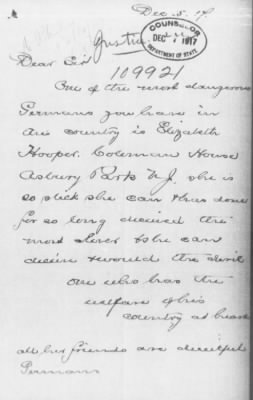 Dec. 5. 17.
COUNSELOR
DEC 7 1917
DEPARTMENT OF STATE
Justice
Dear Sir
109921
One of the most dangerous
Germans you have in
the country is Elizabeth
Hooper. Coleman House
Asbury Park N.J. she is
so slick she can & has done
for so long deceived the
most clever & she can
deceive & would the devil
One who has the
welfare of his
country at heart
all her friends are deceitful
Germans